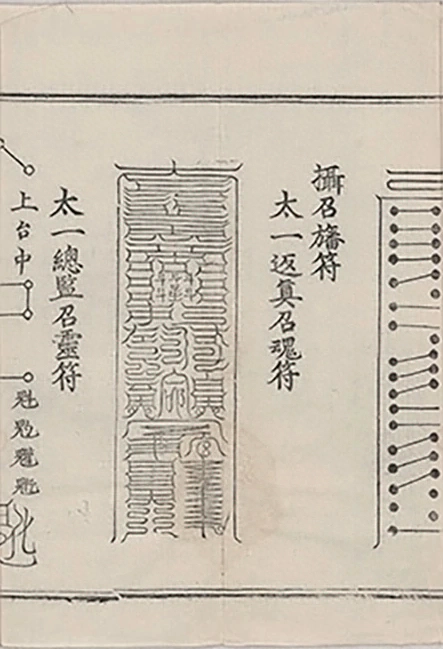 攝召旛符
太一返真召魂符
太一總監召靈符
上台中